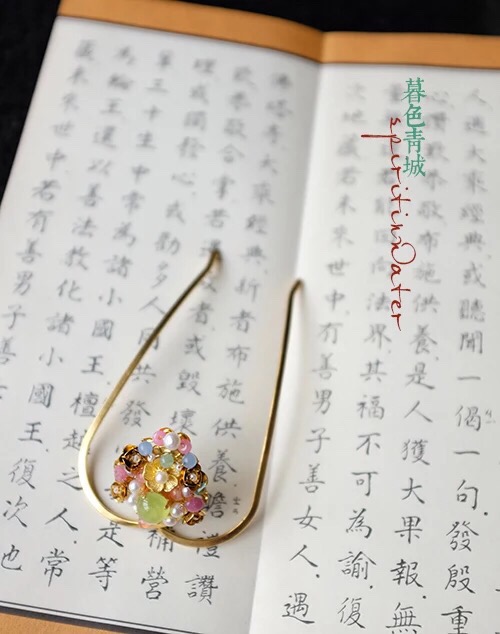 人遇大乘經典.或聽聞一偈一句.發殷重
心讚歎恭敬布施供養.是人獲大果報.無
向法界.其福不可為諭.復
次地藏若未來世中.有善男子善女人.遇
佛塔寺大乘經典.新者布施供養瞻禮讚
歎恭敬合掌.若遇者.或毀壞補營
理.或獨發心.或勸多人同共發是等
輩三十生中常為諸小國王.檀越之人.常
為輪王還以善法教化諸小國王.復次
藏未來世中若有善男子善
暮色青城
spiritinWater